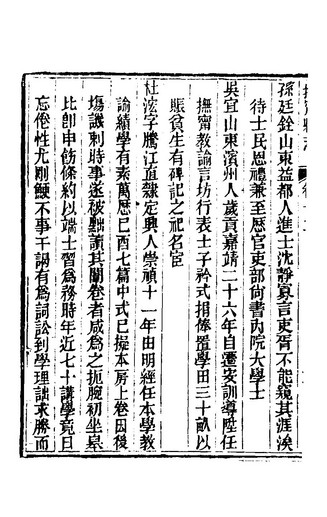 孫廷銓山東益都人進士沈靜寡言吏胥不能窺其涯涘
待士民恩禮兼至歷官吏部尙書內院大學士
吳宜山東濱州人歲貢嘉靖二十六年自遷安訓導陞任
撫甯教諭言坊行表士子衿式捐俸置學田三十畝以
賑貧生有碑記之祀名宦
杜浤字騰江直隸定興人崇禎十一年由明經任本學教
諭績學有素萬歷己酉七篇中式已擬本房上卷因後
塲譏刺時事遂被黜讀其闈卷者咸爲之扼腕初坐臯
比卽申飭條約以端士習爲務時年近七十講學竟日
忘倦性尤剛鯁不事干謁有爲詞訟到學理詘求勝而